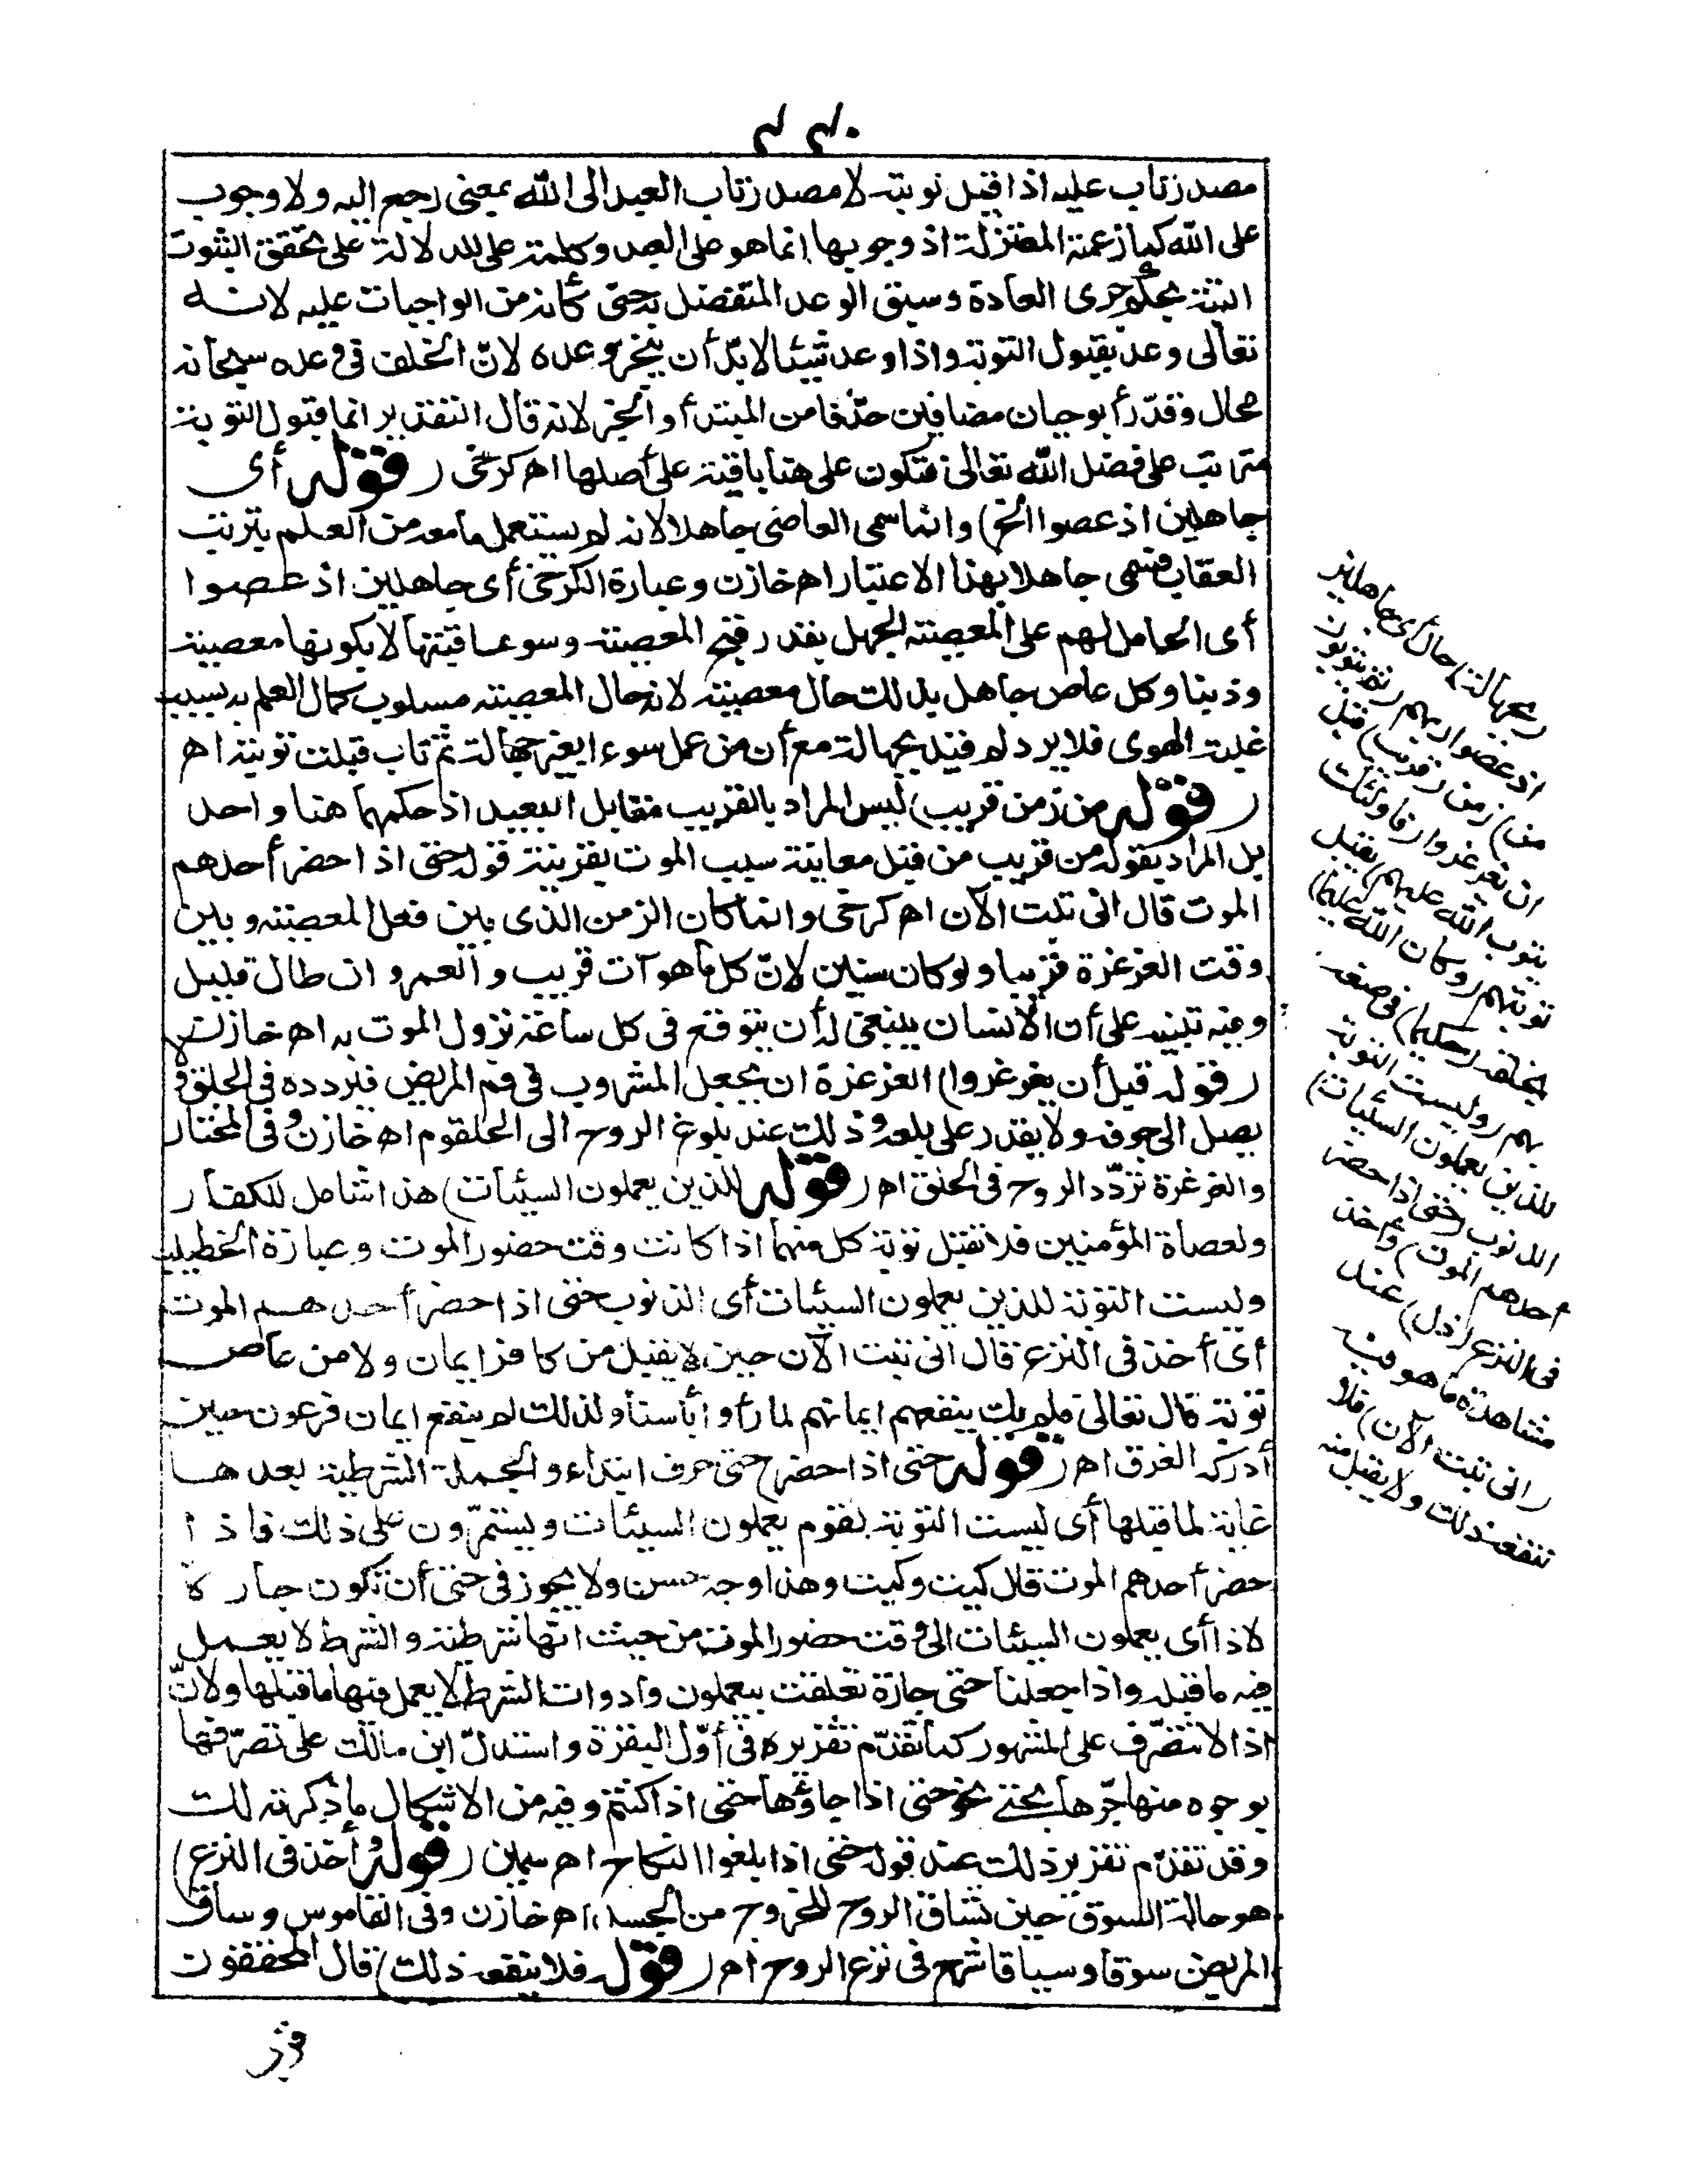 مصدر تاب عليه اذا قبل توبته لا مصدر تاب العبد الى الله بمعنى رجع اليه ولا وجوب
على الله كما زعمة المعتزلة اذ وجوبها انما هو على العبد وكلمة على للدلالة على تحقق الثبوت
البتة بحكم جرى العادة وسبق الوعد المتفضل به حتى كأنه من الواجبات عليه لانه
تعالى وعد بقبول التوبة واذا وعد شيئا لابد أن ينجز وعده لانّ الخلف فى وعده سبحانه
محال وقدّر أبو حيان مضافين حذفا من المبتدأ والخبر لانه قال التقدير انما قبول التوبة
مترتب على فضل الله تعالى فتكون على هنا باقية على أصلها اه كرخى (قوله أى
جاهلين اذ عصوا الخ) وانما سمى العاصى جاهلا لانه لم يستعمل ما معه من العلم بترتب
العقاب فسمى جاهلا بهذا الاعتبار اه خازن وعبارة الكرخى أى جاهلين اذ عصوا
أى الحامل لهم على المعصية الجهل بقدر قبح المعصية وسوء عاقبتها لا بكونها معصية
وذنبا وكل عاص جاهل بذلك حال معصيته لانه حال المعصية مسلوب كمال العلم به بسبب
غلبة الهوى فلا يرد لم قيد بجهالة مع أن من عمل سوءا بغير جهالة ثم تاب قبلت توبته اه
(قوله من زمن قريب) ليس المراد بالقريب مقابل البعيد اذ حكمهما هنا واحد
بل المراد بقوله من قريب من قبل معاينة سبب الموت بقرينة قوله حتى اذا حضر أحدهم
الموت قال انى تبت الآن اه كرخى وانما كان الزمن الذى بين فعل المعصية وبين
وقت الغرغرة قريبا ولو كان سنين لانّ كل ما هو آت قريب والعمر وان طال قليل
وفيه تنبيه على أن الانسان ينبغى له أن يتوقع فى كل ساعة نزول الموت به اه خازن
(قوله قبل أن يغرغروا) الغرغرة ان يجعل المشروب فى فم المريض فيردده فى الحلق ولا
يصل الى جوفه ولا يقدر على بلعه وذلك عند بلوغ الروح الى الحلقوم اه خازن وفى المختار
والغرغرة تردّد الروح فى الحلق اه (قوله للذين يعملون السيئات) هذا شامل للكفار
ولعصاة المؤمنين فلا تقبل توبة كل منهما اذا كانت وقت حضور الموت وعبارة الخطيب
وليست التوبة للذين يعملون السيئات أى الذنوب حتى اذا حضر أحدهم الموت
أى أخذ فى النزع قال انى تبت الآن حين لا يقبل من كافر ايمان ولا من عاص
توبة قال تعالى فلم يك ينفعهم ايمانهم لما رأوا بأسنا ولذلك لم ينفع ايمان فرعون حين
أدركه الغرق اه (قوله حتى اذا حضر) حتى حرف ابتداء والجملة الشرطية بعدها
غاية لما قبلها أى ليست التوبة لقوم يعملون السيئات ويستمرّون على ذلك فاذا
حضر أحدهم الموت قال كيت وكيت وهذا وجه حسن ولا يجوز فى حتى أن تكون جارة
لاذا أى يعملون السيئات الى وقت حضور الموت من حيث انها شرطية والشرط لا يعمل
فيه ما قبله واذا جعلنا حتى جارة تعلقت بيعملون وأدوات الشرط لا يعمل فيها ما قبلها ولانّ
اذا لا تتصرّف على المشهور كما تقدّم تقريره فى أوّل البقرة واستدلّ ابن مالك على تصرّفها
بوجوه منها جرّها بحتى نحو حتى اذا جاؤها حتى اذا كنتم وفيه من الاشكال ما ذكرته لك
وقد تقدّم تقرير ذلك عند قوله حتى اذا بلغوا النكاح اه سمين (قوله وأخذ فى النزع)
هو حالة السوق حين تساق الروح للخروج من الجسد اه خازن وفى القاموس وساق
المريض سوقا وسياقا شرع فى نزع الروح اه (قوله فلا ينفعه ذلك) قال المحققون
(بجهالة) حال أى جاهلين
اذ عصوا ربهم (ثم يتوبون
من) زمن (قريب) قبل
ان يغرغروا (فأولئك
يتوب الله عليهم) يقبل
توبتهم (وكان الله عليما)
بخلقه (حكيما) فى صنعه
بهم (وليست التوبة
للذين يعملون السيئات)
الذنوب (حتى اذا حضر
أحدهم الموت) وأخذ
فى النزع (قال) عند
مشاهدة ما هو فيه
(انى تبت الآن) فلا
ينفعه ذلك ولا يقبل منه